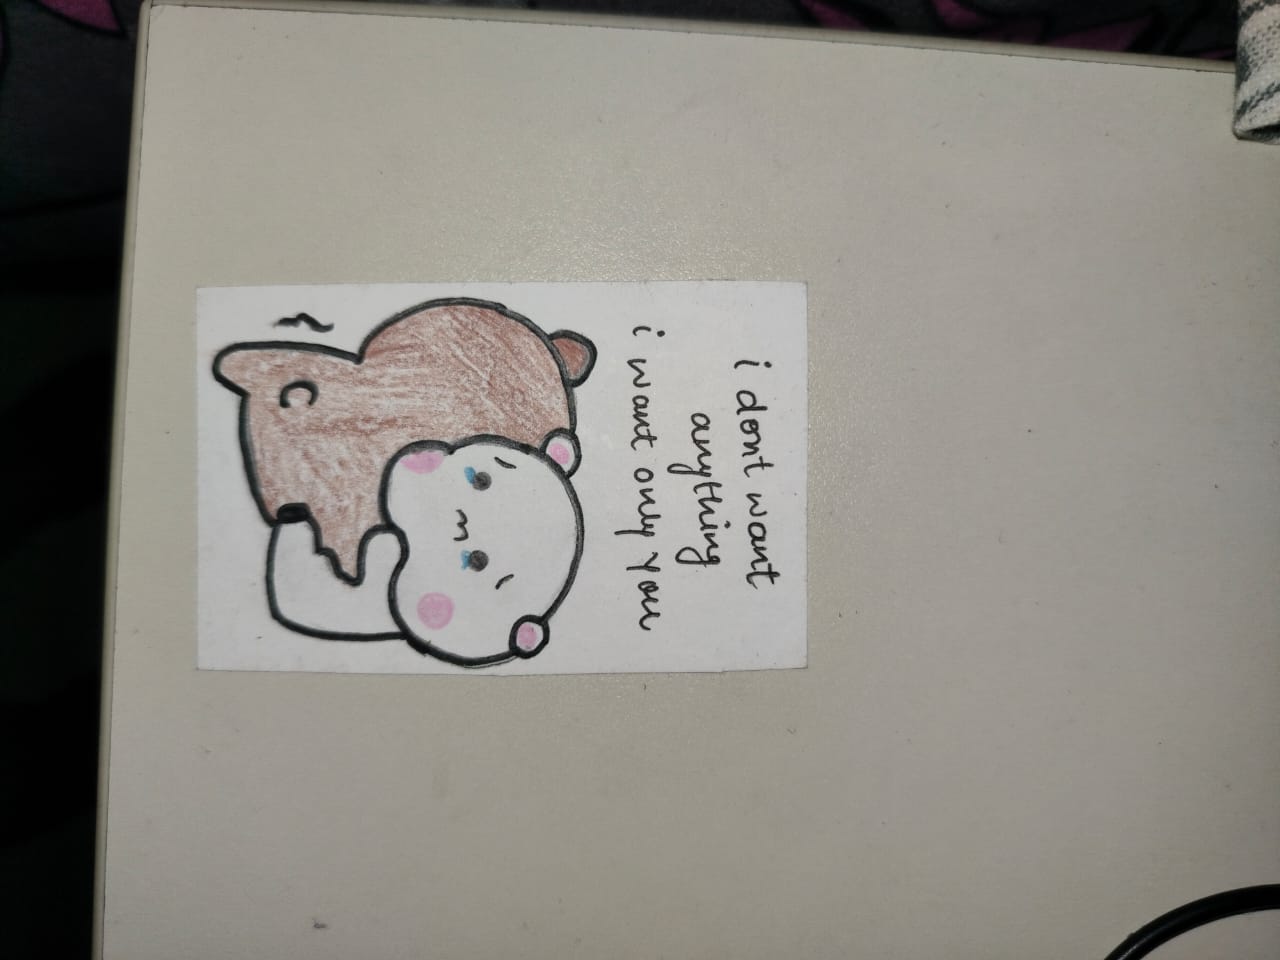 i dont want
anything
i want only you